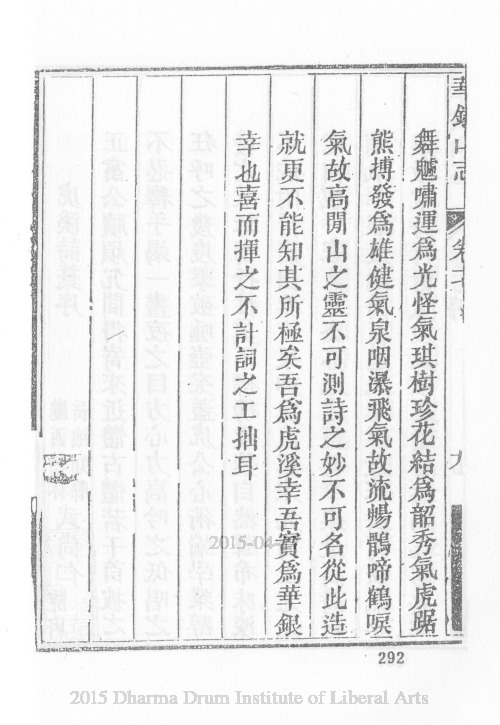 華銀山志
舞魑嘯運爲光怪氣琪樹珍花結爲韶秀氣虎踞
熊搏發爲雄健氣泉咽瀑飛氣故流暢鶻啼鶴唳
氣故高閒山之靈不可測詩之妙不可名從此造
就更不能知其所極矣吾爲虎溪幸吾實爲華銀
幸也喜而揮之不計詞之工拙耳
2015-04-
292
2015 Dharma Drum Institute of Liberal Arts